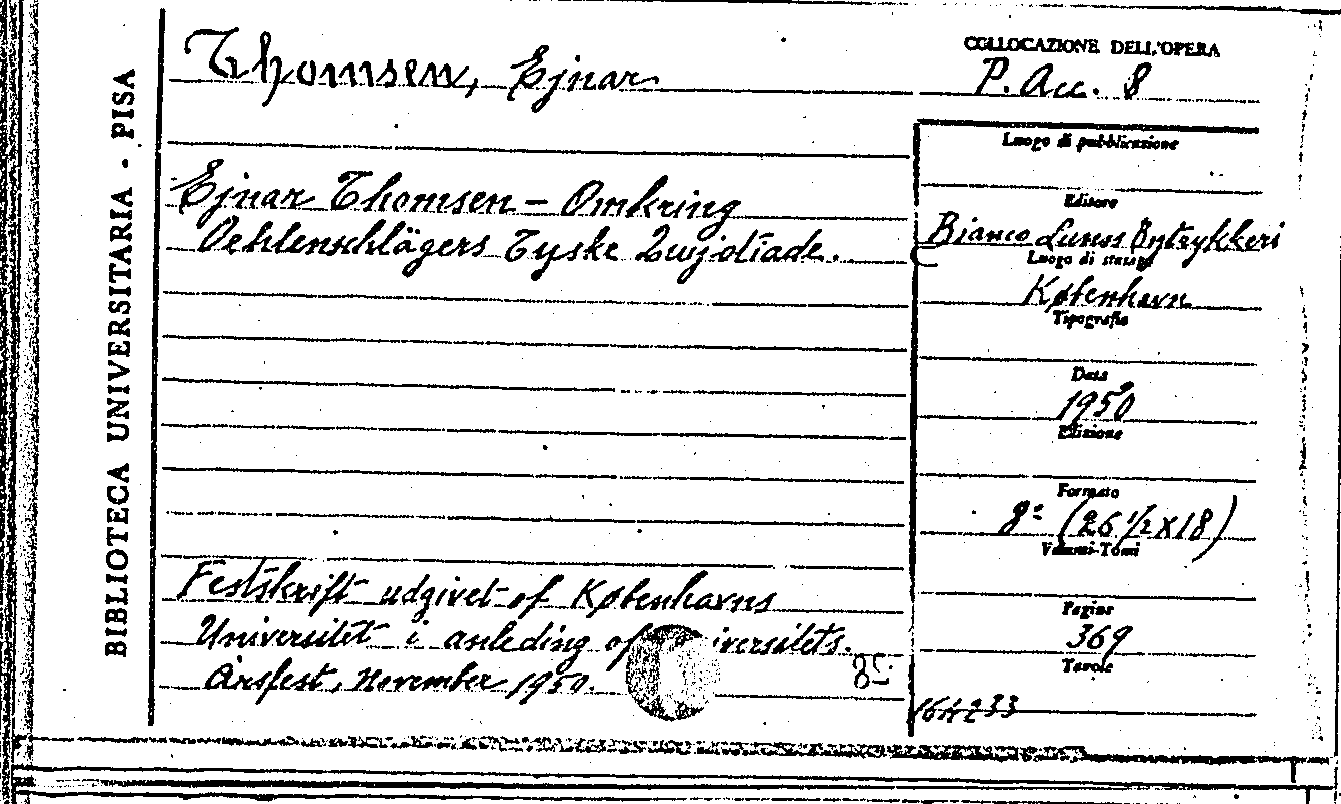 BIBLIOTECA UNIVERSITARIA - PISA
Thomsen, Ejnar
Ejnar Thomsen - Omkring
Oehlenschlägers Tyske
Festskrift udgivet of Københavns
Universitet i anleding of iversitets.
Årsfest, November 1950.
COLLOCAZIONE DELL'OPERA
P. Acc. 8
Luogo di pubblicazione
Editore
Bianco Lunos
Luogo di stampa
København
Tipografia
Data
1950
Edizione
Formato
8º (26 1/2 X 18)
Volumi-Tomi
Pagine
369
Tavole